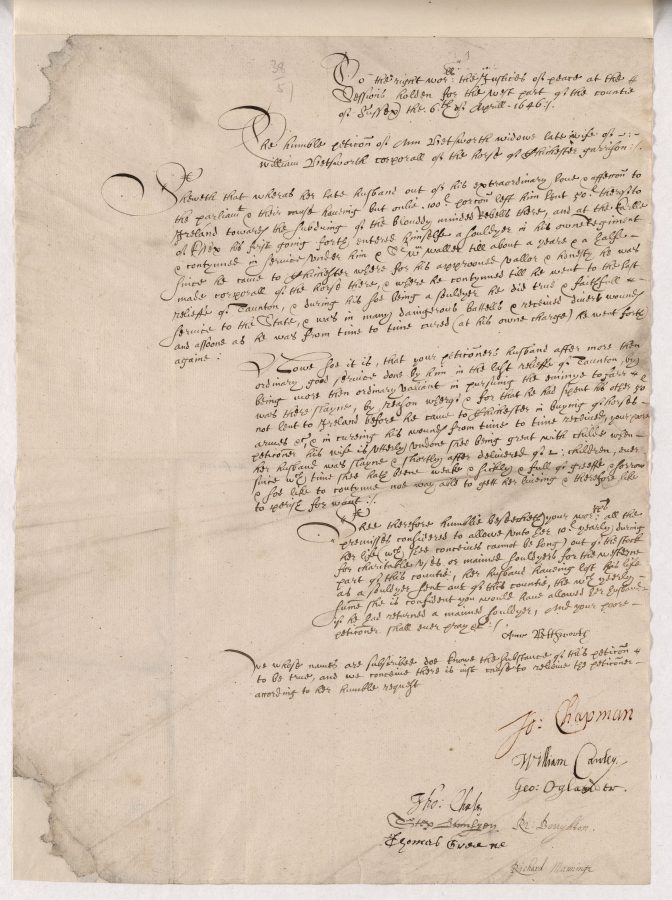 38
51
To the right wor:ll the Justices of peace at the
Sessions holden for the west part of the countie
of Sussex the 6th of Aprill 1646:/.
The humble peticōn of Ann Bettsworth widowe late wife of
William Bettsworth corporall of the horse of Chichester garrison:/.
Sheweth that wheras her late husband out of his extraordinary love & affeccōn to
the parliamt & their cause haveing but onlie 100l porcōn left him lent 50l therof to
Ireland towards the subdueing of the bloudy minded rebells there, and at the Earle
of Essex his first going forth, entered himselfe a souldyer in his owne regiment
& contynned in service under him & Sr Wm Waller till about a yeare & a halfe
since he came to Chichester where for his approoved vallor & honesty he was
made corporall of the horse there, & where he contynued till he went to the last
reliefe of Taunton, & during his soe being a souldyer he did true & faithfull
service to the State, & was in many daingerous battells & received divers wounds
and assoone as he was from time to time cured (at his owne charge) he went forth
againe:
Nowe soe it is, that your peticōners husband after more then
ordinary good service done by him in the last reliefe of Taunton (by)
being more then ordinary valiant in pursuing the enimye to farr
was there slayne, by reason wherof & for that he had spent his other 50l
not lent to Ireland before he came to Chichester in buying of horses
armes &c & in cureing his wounds from time to time received, your poore
peticoner his wife is utterly undone shee being great with childe when
her husband was slayne & shortly after delivered of 2: children, ever
since wch time shee hath beene weake & sickly & full of greefe & sorrow
& soe like to contynue noe way able to gett her liveing & therefore like
to perish for want:/.
Shee therefore humblie beseecheth your worpps all the
premisses considered to allowe unto her 10l yearly during
her life (wch shee conceives cannot be long) out of the stock
for charitable uses or maimed souldyers for the westerne
part of this countie, her husband haveing lost his life
as a souldyer sent out of this countie, the wch yearly
summe she is confident you would have allowed her husband
if he had returned a maimed souldyer, And your poore
peticoner shall ever pray &c:/
Ann Bettsworth
we whose names are subscribed doe knowe the substance of this peticōn
to be true, and we conceive there is just cause to releive the peticoner
according to her humble request
Jo: Chapman
William Cawley
Geo: Oglander
Tho:
Thomas Greene
Ri: Bonython
Richard Manninge